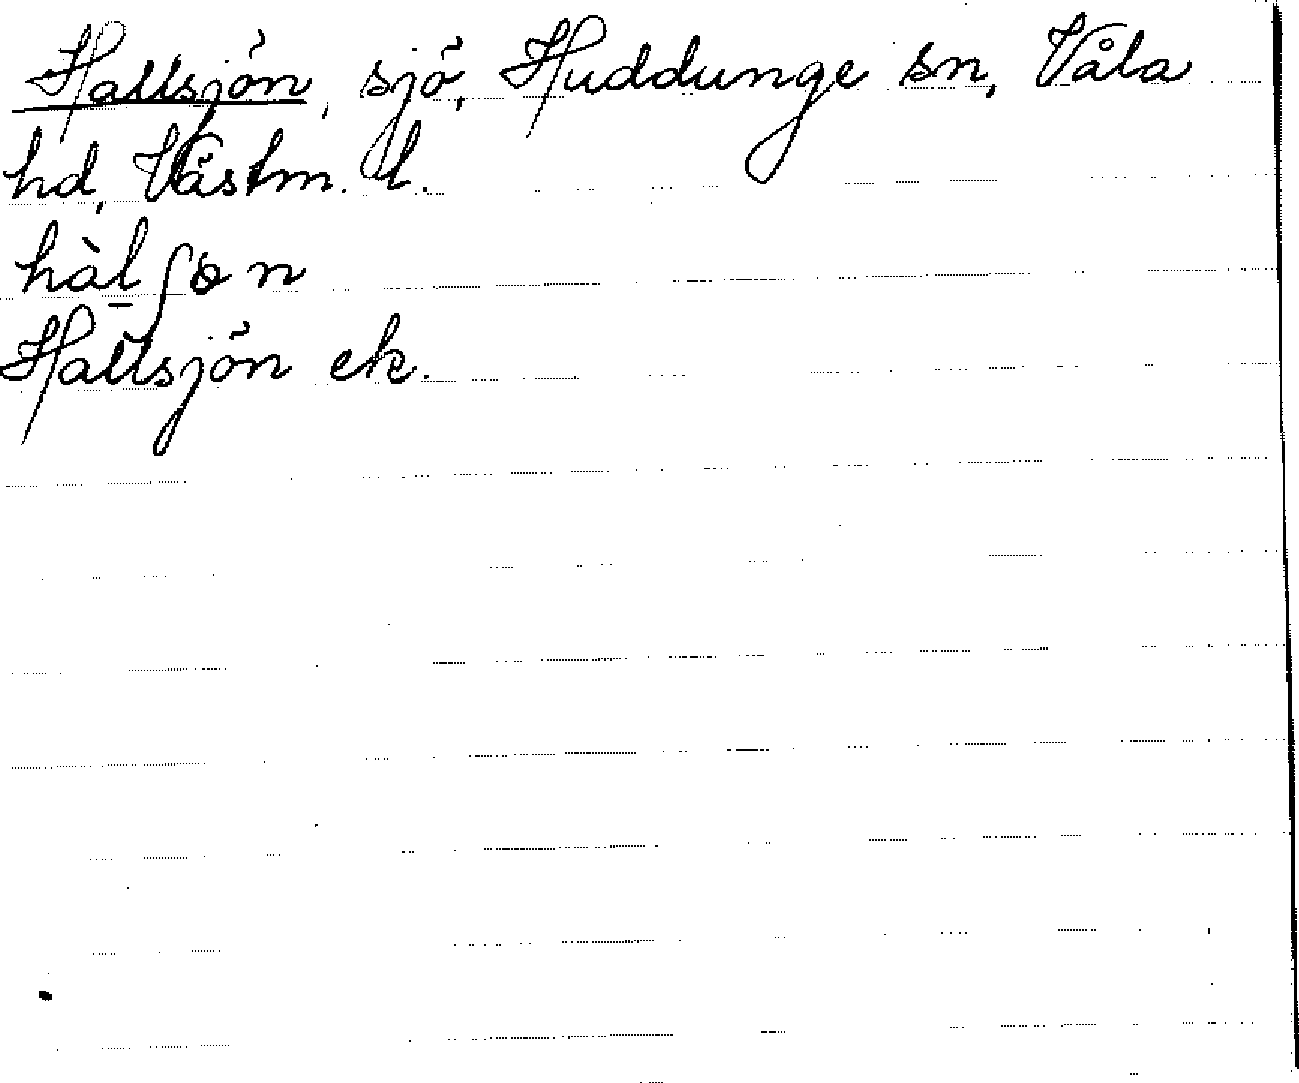 Hallsjön, sjö, Huddunge sn, Våla
hd, Västm. l.
hàl̠ʃɵn
Hallsjön ek.